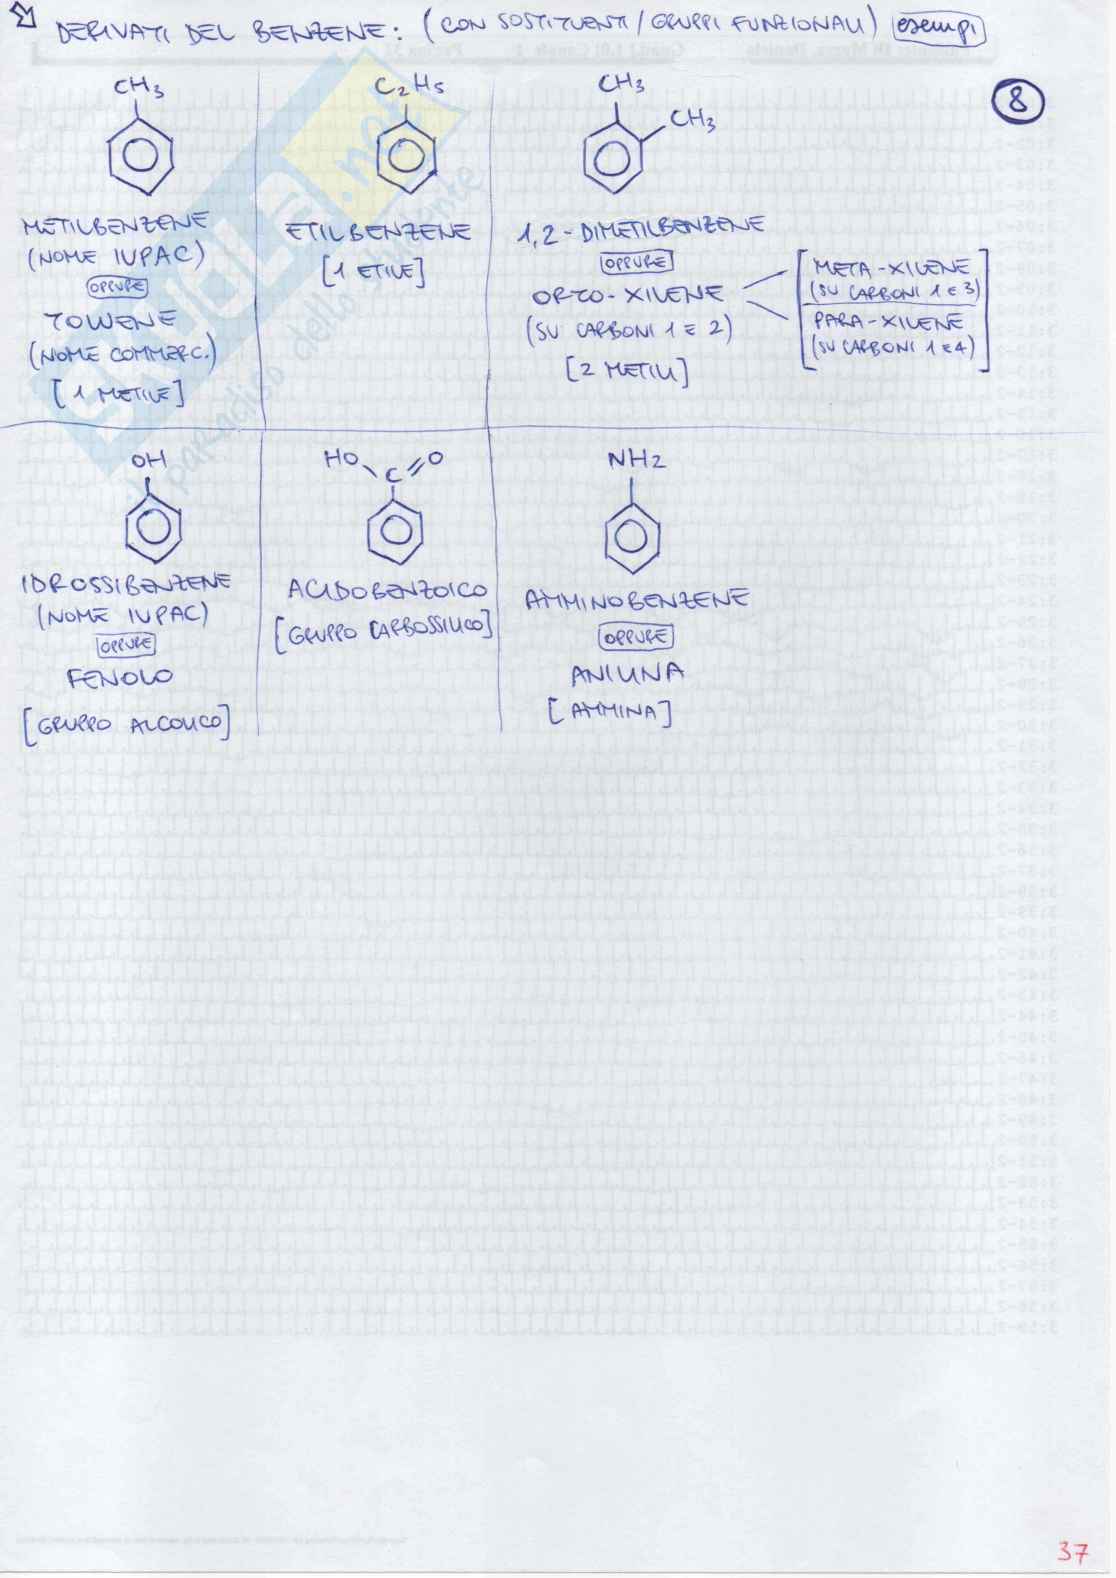 DERIVATI DEL BENZENE: (CON SOSTITUENTI/GRUPPI FUNZIONALI) esempi
8
CH3
METILBENZENE
(NOME IUPAC)
OPPURE
TOLUENE
(NOME COMMERC.)
[1 METILE]
C2H5
ETILBENZENE
[1 ETILE]
CH3
CH3
1,2-DIMETILBENZENE
OPPURE
ORTO-XILENE
(SU CARBONI 1 E 2)
[2 METILI]
META-XILENE
(SU CARBONI 1 E 3)
PARA-XILENE
(SU CARBONI 1 E 4)
OH
IDROSSIBENZENE
(NOME IUPAC)
OPPURE
FENOLO
[GRUPPO ALCOLICO]
HO C O
ACIDO BENZOICO
[GRUPPO CARBOSSILICO]
NH2
AMMINOBENZENE
OPPURE
ANILINA
[AMMINA]
37